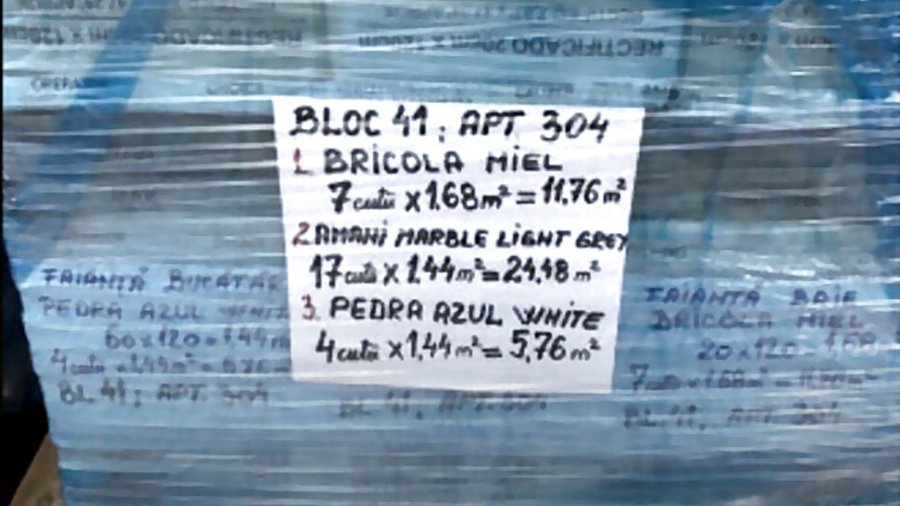 RECTIFICADO 20cm x 120cm
RECTIFICADO 20cm x 120cm
BLOC 41; APT 304
1. BRICOLA MIEL
7 cutii x 1,68 m² = 11,76 m²
2 AMANI MARBLE LIGHT GREY
17 cutii x 1,44 m² = 24,48 m²
3. PEDRA AZUL WHITE
4 cutii x 1,44 m² = 5,76 m²
FAIANȚĂ BUCĂTĂR
PEDRA AZUL WHITE
60x120 = 1,44 m
4 cutii x 1,44 m² = 5,76
BL 41; APT. 304
BL 41; APT. 304
FAIANȚĂ BAIE
BRICOLA MIEL
20x120 = 1,68
7 cutii x 1,68 m² = 11,76 m²
BL 41; APT. 304